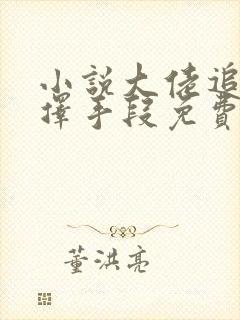 小說大佬追
擇手段免費
董洪亮